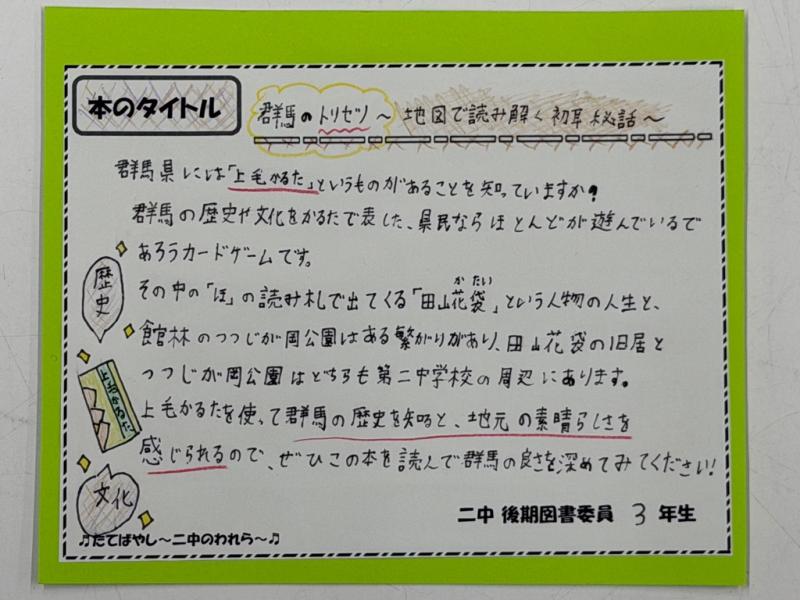 本のタイトル
群馬のトリセツ～地図で読み解く初耳秘話～
群馬県には「上毛かるた」というものがあることを知っていますか?
群馬の歴史や文化をかるたで表した、県民ならほとんどが遊んでいるで
あろうカードゲームです。
その中の「ほ」の読み札で出てくる「田山花袋」という人物の人生と、
かたい
館林のつつじが岡公園はある繋がりがあり、田山花袋の旧居と
つつじが岡公園はどちらも第二中学校の周辺にあります。
上毛かるたを使って群馬の歴史を知ると、地元の素晴らしさを
感じられるので、ぜひこの本を読んで群馬の良さを深めてみてください!
歴史
上毛かるた
文化
二中 後期図書委員 3 年生
♫たてばやし～二中のわれら～♫